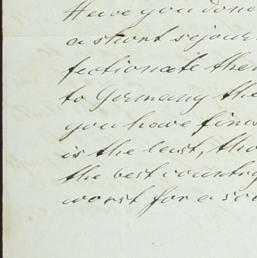 Have you done
a short sejour
fectionate the
to Germany the
you have fin
is the last, tho
the best country
worst for a so